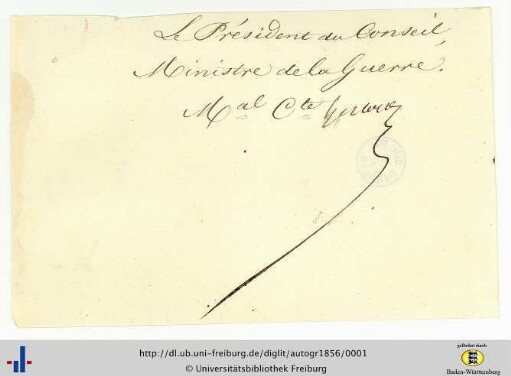 Le Président du Conseil,
Ministre de la Guerre.
Mal Cte Gérard
http://dl.ub.uni-freiburg.de/diglit/autogr1856/0001
© Universitätsbibliothek Freiburg
gefördert durch
Baden-Württemberg